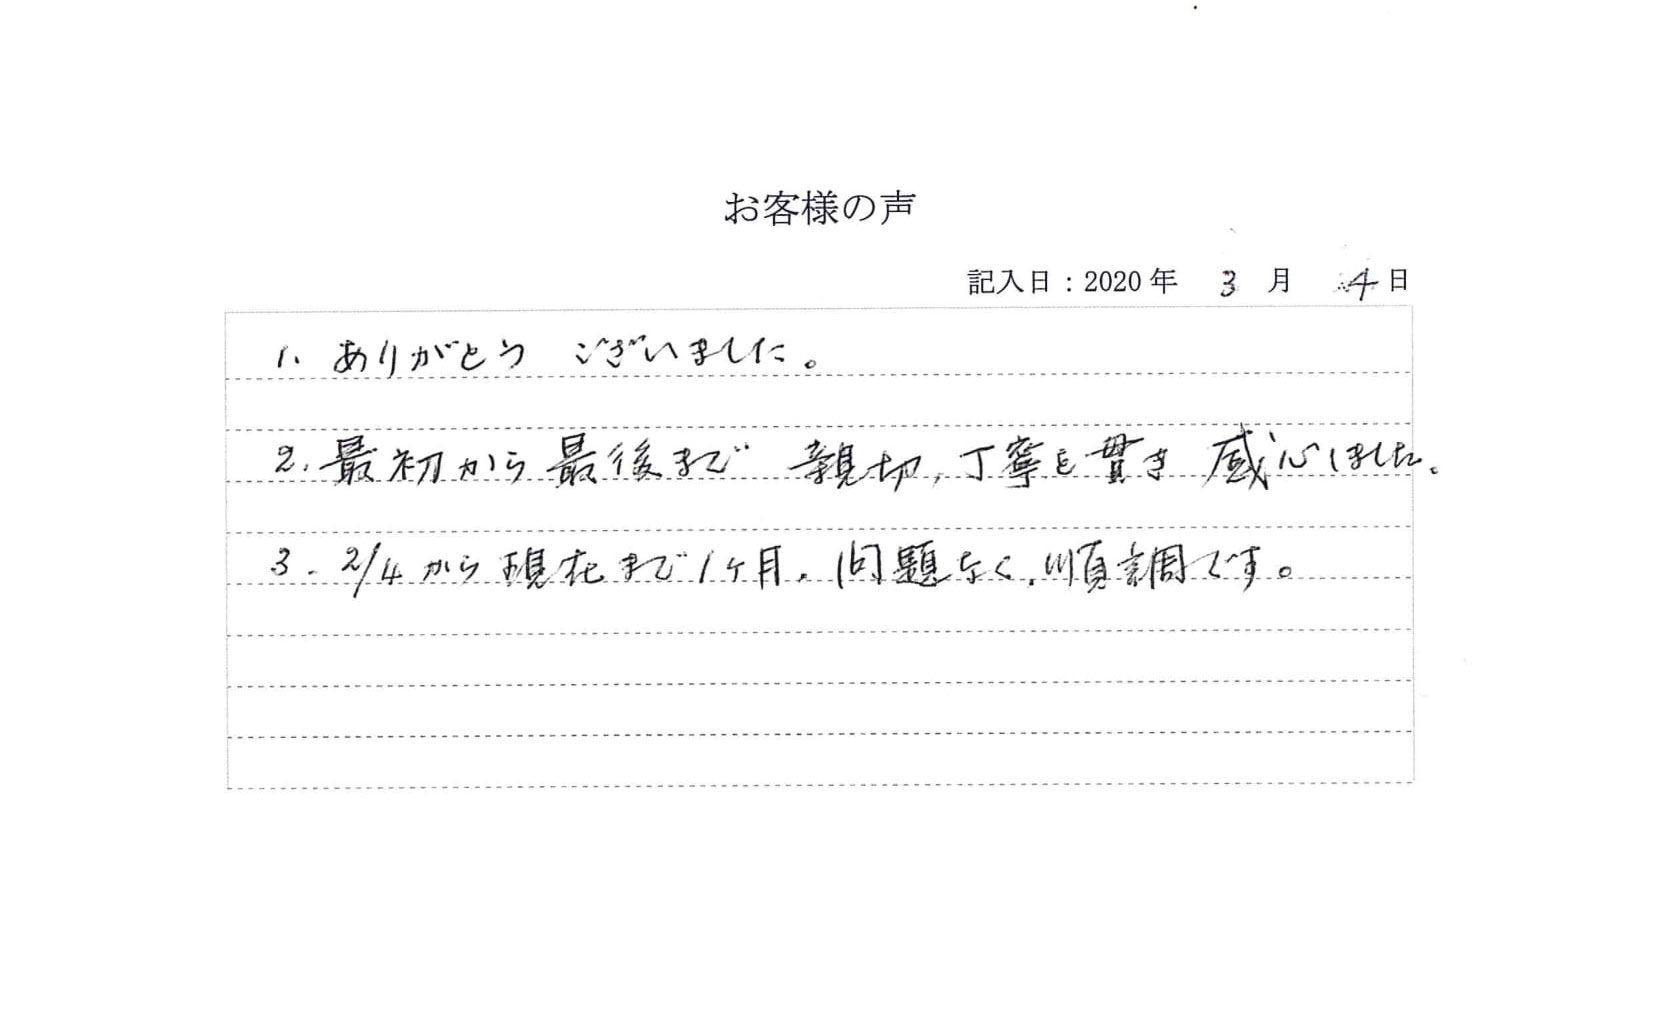 お客様の声
記入日：2020年 3 月 4日
1. ありがとう ございました。
2. 最初から最後まで 親切, 丁寧を貫き 感心しました。
3. 2/4から現在まで1ヶ月, 問題なく, 順調です。